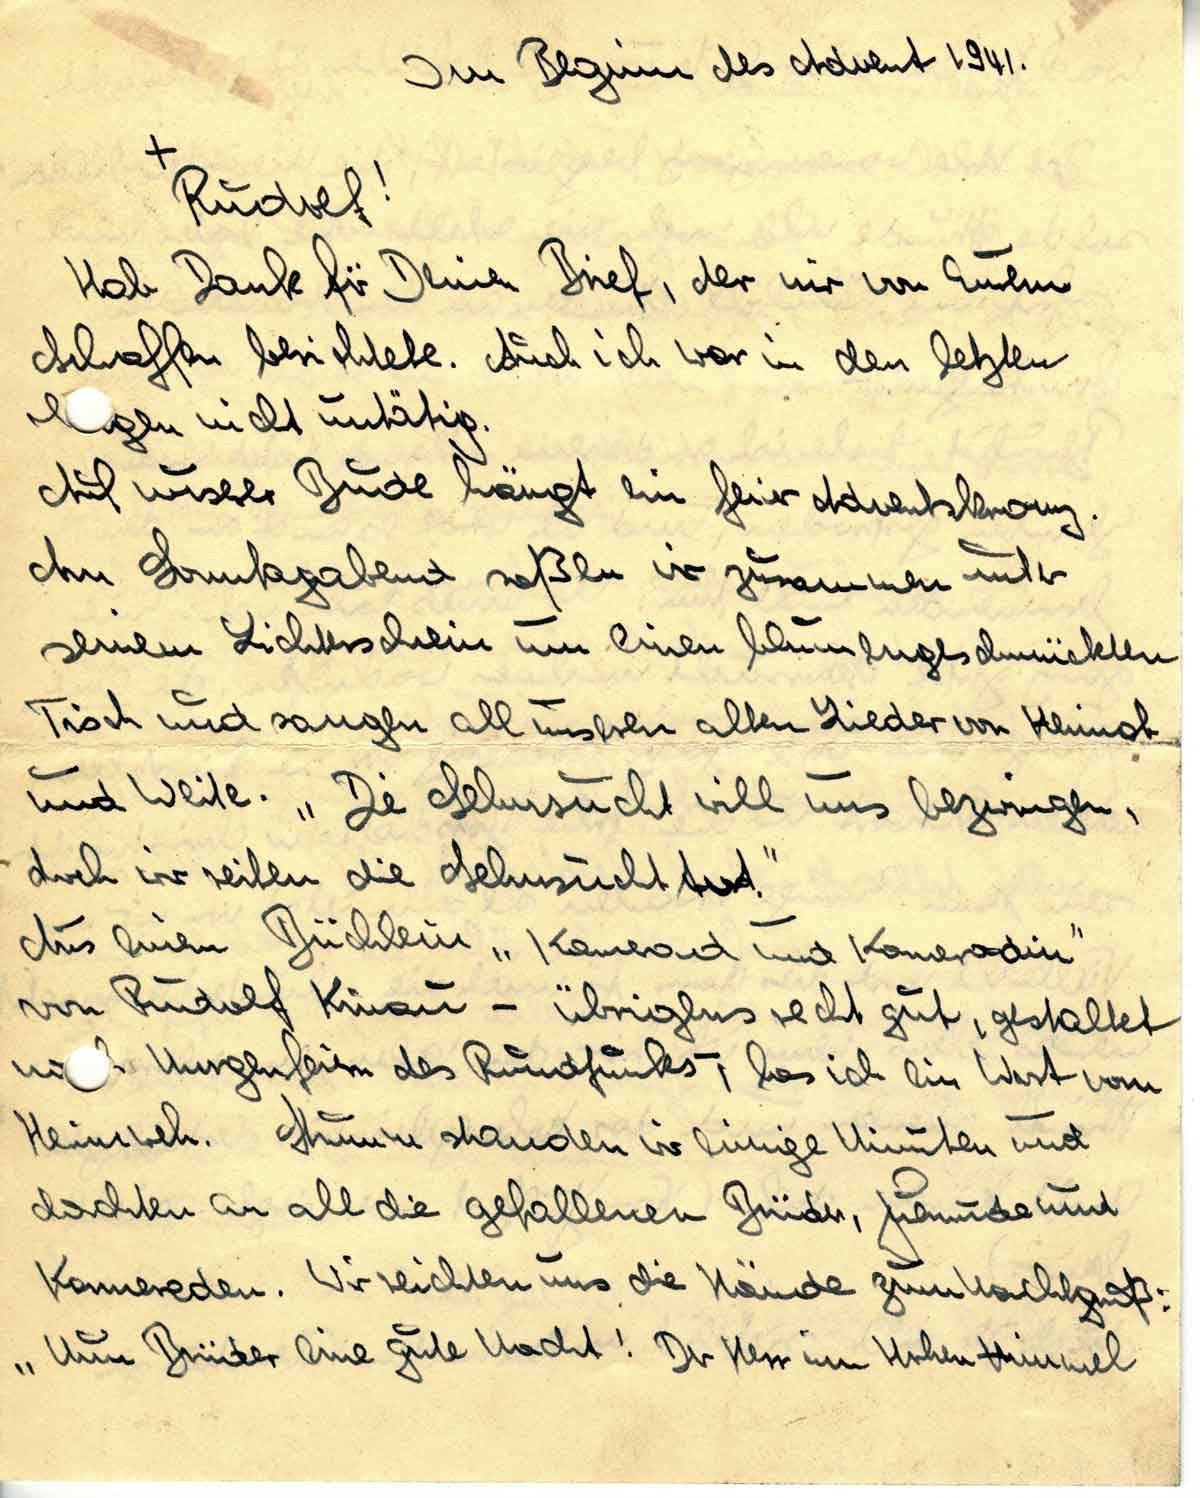 Im Beginn des Advent 1941.
+
Rudolf!
Hab Dank für Deinen Brief, der mir von Eurem
Schaffen berichtete. Auch ich war in den letzten
nicht untätig.
Auf unserer Bude hängt ein feiner Adventskranz.
Am Sonntagabend saßen wir zusammen unter
seinem Lichterschein um einen blumengeschmückten
Tisch und sangen all unsere alten Lieder von Heimat
und Weite. „Die Sehnsucht will uns bezwingen,
doch wir reiten die Sehnsucht tot."
Aus einem Büchlein „Kamerad und Kameradin"
von Rudolf Kinau – übrigens recht gut, gestaltet
nach Morgenfeiern des Rundfunks –, las ich ein Wort vom
Heimweh. Stumm standen wir einige Minuten und
dachten an all die gefallenen Brüder, Freunde und
Kameraden. Wir reichten uns die Hände zum Nachtgruß:
„Nun Brüder eine gute Nacht! Der Herr im Hohen Himmel